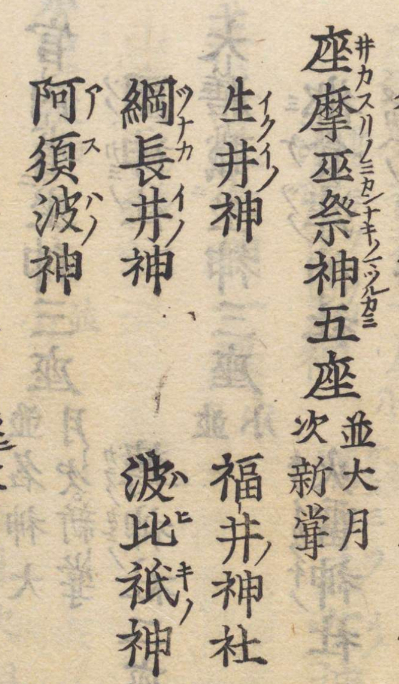 座摩巫祭神五座 並大月次新嘗
生井神 福井神社
綱長井神 波比祇神
阿須波神